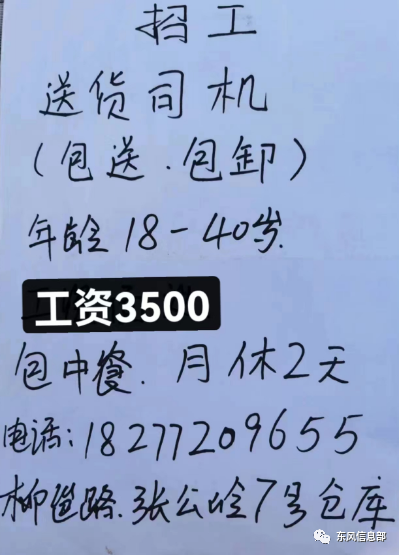 招工
送货司机
(包送.包卸)
年龄18-40岁.
工资3500
包中餐.月休2天
电话:18277209655
柳邕路.张公岭7号仓库
东风信息部